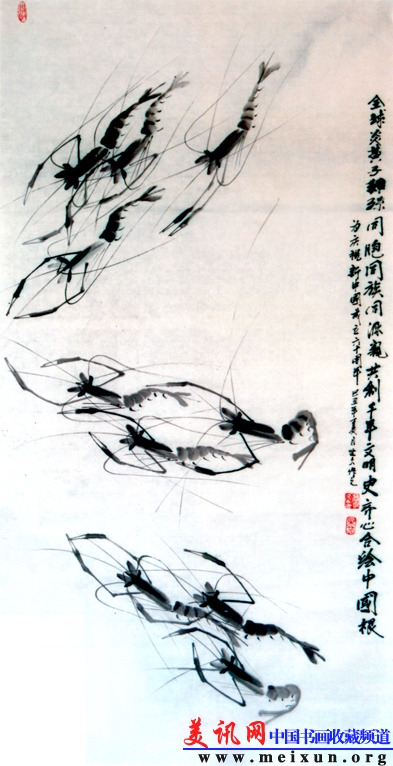 全球炎黄子 同胞同族同源 共創千年文明史齐心合绘中國根
为庆祝新中國成立六十周年 己丑年夏月
美讯网 中国书画收藏频道
www.meixun.org